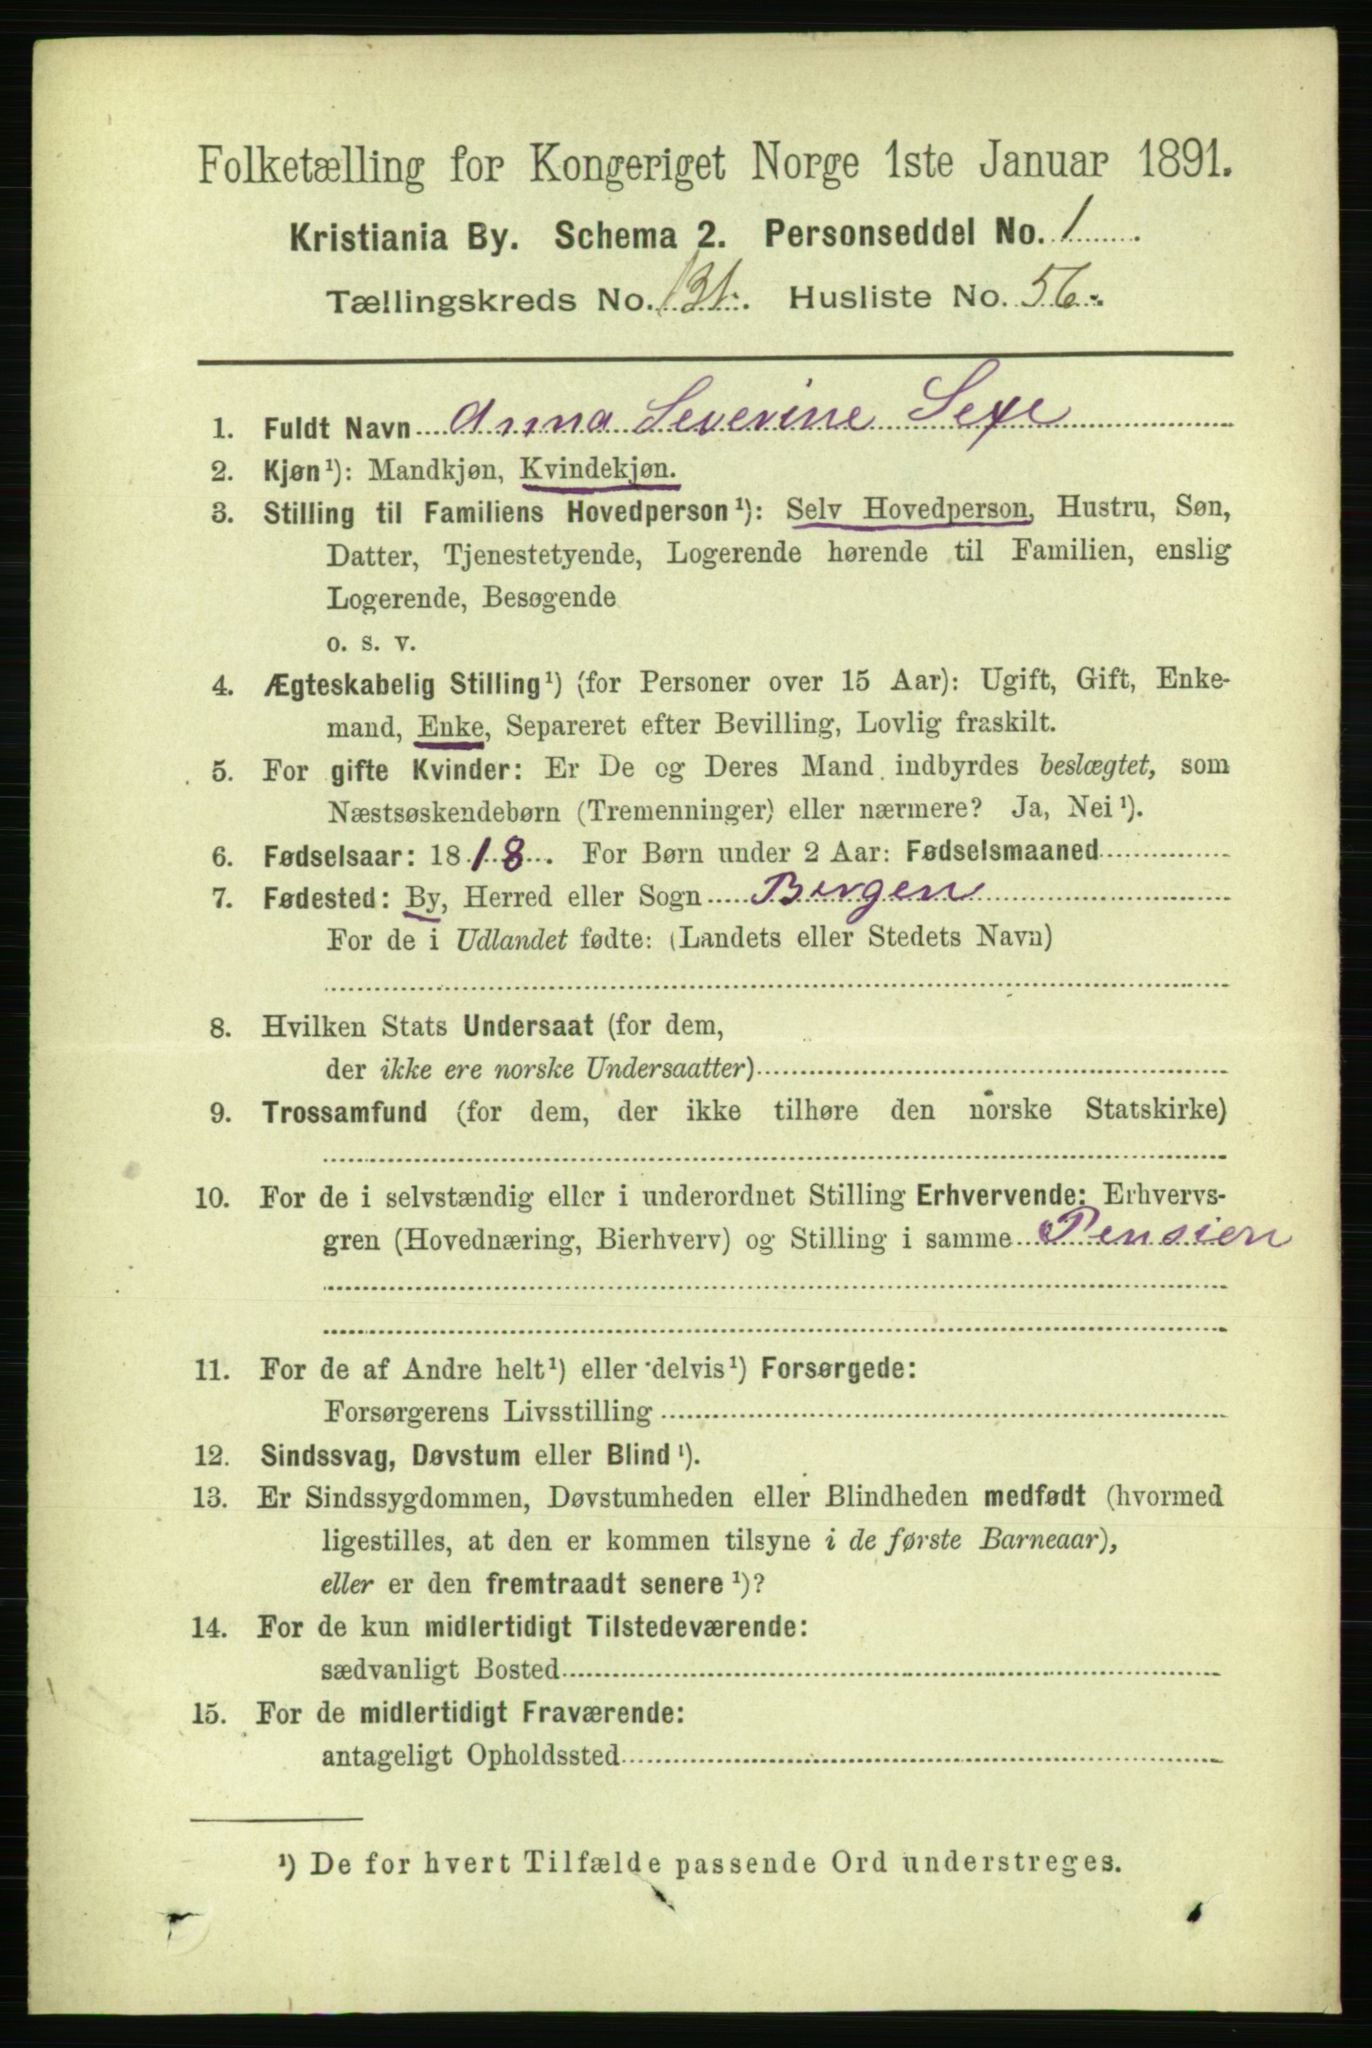 Folketælling for Kongeriget Norge 1ste Januar 1891.
Kristiania By. Schema 2. Personseddel No. 1
Tællingskreds No. 131. Husliste No. 56.
1. Fuldt Navn Anna Severine Sexe
2. Kjøn¹): Mandkjøn, Kvindekjøn.
3. Stilling til Familiens Hovedperson¹): Selv Hovedperson, Hustru, Søn,
Datter, Tjenestetyende, Logerende hørende til Familien, enslig
Logerende, Besøgende
o. s. v.
4. Ægteskabelig Stilling¹) (for Personer over 15 Aar): Ugift, Gift, Enke-
mand, Enke, Separeret efter Bevilling, Lovlig fraskilt.
5. For gifte Kvinder: Er De og Deres Mand indbyrdes beslægtet, som
Næstsøskendebørn (Tremenninger) eller nærmere? Ja, Nei¹).
6. Fødselsaar: 1818. For Børn under 2 Aar: Fødselsmaaned
7. Fødested: By, Herred eller Sogn Bergen
For de i Udlandet fødte: (Landets eller Stedets Navn)
8. Hvilken Stats Undersaat (for dem,
der ikke ere norske Undersaatter)
9. Trossamfund (for dem, der ikke tilhøre den norske Statskirke)
10. For de i selvstændig eller i underordnet Stilling Erhvervende: Erhvervs-
gren (Hovednæring, Bierhverv) og Stilling i samme Pension
11. For de af Andre helt¹) eller delvis¹) Forsørgede:
Forsørgerens Livsstilling
12. Sindssvag, Døvstum eller Blind¹).
13. Er Sindssygdommen, Døvstumheden eller Blindheden medfødt (hvormed
ligestilles, at den er kommen tilsyne i de første Barneaar),
eller er den fremtraadt senere¹)?
14. For de kun midlertidigt Tilstedeværende:
sædvanligt Bosted
15. For de midlertidigt Fraværende:
antageligt Opholdssted
¹) De for hvert Tilfælde passende Ord understreges.